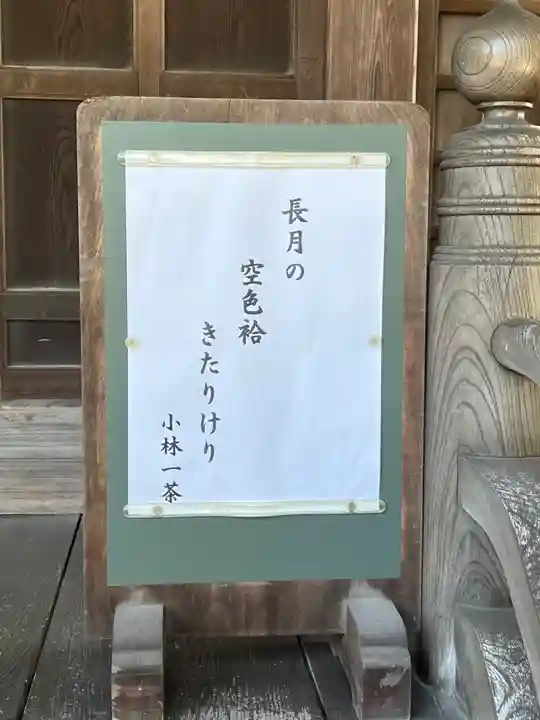 長月の
空色袷
きたりけり
小林一茶